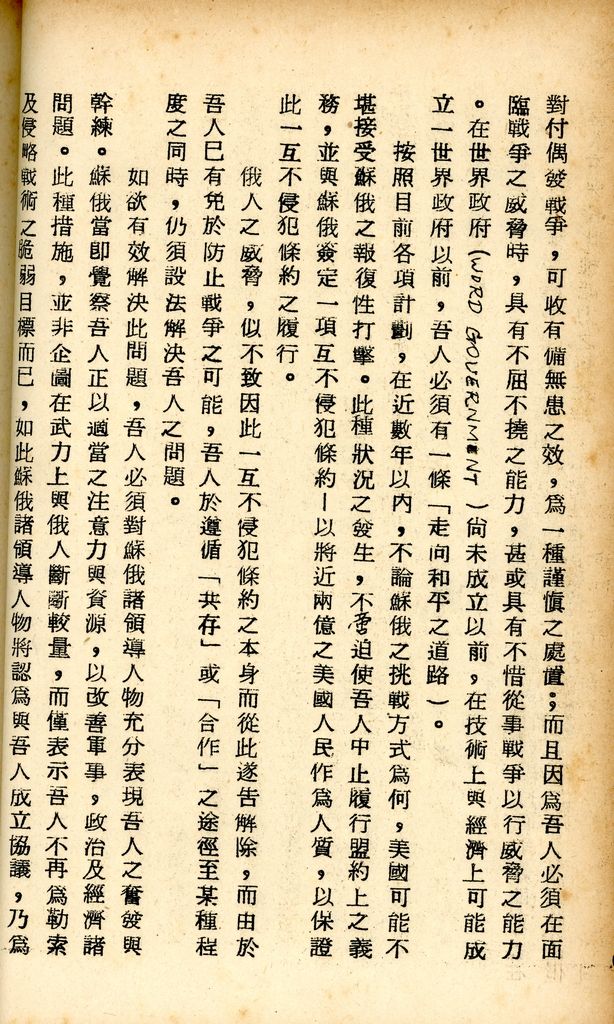 對付偶發戰爭，可收有備無患之效，為一種謹慎之處置；而且因為吾人必須在面
臨戰爭之威脅時，具有不屈不撓之能力，甚或具有不惜從事戰爭以行威脅之能力
。在世界政府（WORD GOVERNMENT）尚未成立以前，在技術上與經濟上可能成
立一世界政府以前，吾人必須有一條「走向和平之道路」。
按照目前各項計劃，在近數年以內，不論蘇俄之挑戰方式為何，美國可能不
堪接受蘇俄之報復性打擊。此種狀況之發生，不啻迫使吾人中止履行盟約上之義
務，並與蘇俄簽定一項互不侵犯條約—以將近兩億之美國人民作為人質，以保證
此一互不侵犯條約之履行。
俄人之威脅，似不致因此一互不侵犯條約之本身而從此遂告解除，而由於
吾人已有免於防止戰爭之可能，吾人於遵循「共存」或「合作」之途徑至某種程
度之同時，仍須設法解決吾人之問題。
如欲有效解決此問題，吾人必須對蘇俄諸領導人物充分表現吾人之奮發與
幹練。蘇俄當即覺察吾人正以適當之注意力與資源，以改善軍事，政治及經濟諸
問題。此種措施，並非企圖在武力上與俄人斷斷較量，而僅表示吾人不再為勒索
及侵略戰術之脆弱目標而已，如此蘇俄諸領導人物將認為與吾人成立協議，乃為